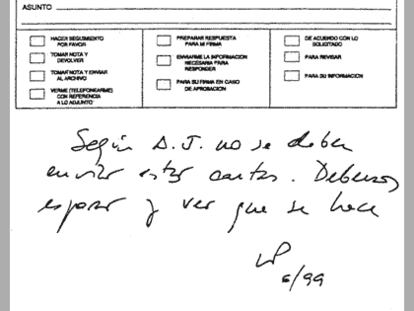 ASUNTO
HACER SEGUIMIENTO
POR FAVOR
TOMAR NOTA Y
DEVOLVER
TOMAR NOTA Y ENVIAR
AL ARCHIVO
VERME (TELEFONEARME)
CON REFERENCIA
A LO ADJUNTO
PREPARAR RESPUESTA
PARA MI FIRMA
ENVIARME LA INFORMACION
NECESARIA PARA
RESPONDER
PARA SU FIRMA EN CASO
DE APROBACION
DE ACUERDO CON LO
SOLICITADO
PARA REVISAR
PARA SU INFORMACION
Según A.J. no se deben
enviar estas cartas. Debemos
esperar y ver que se hace
6/99